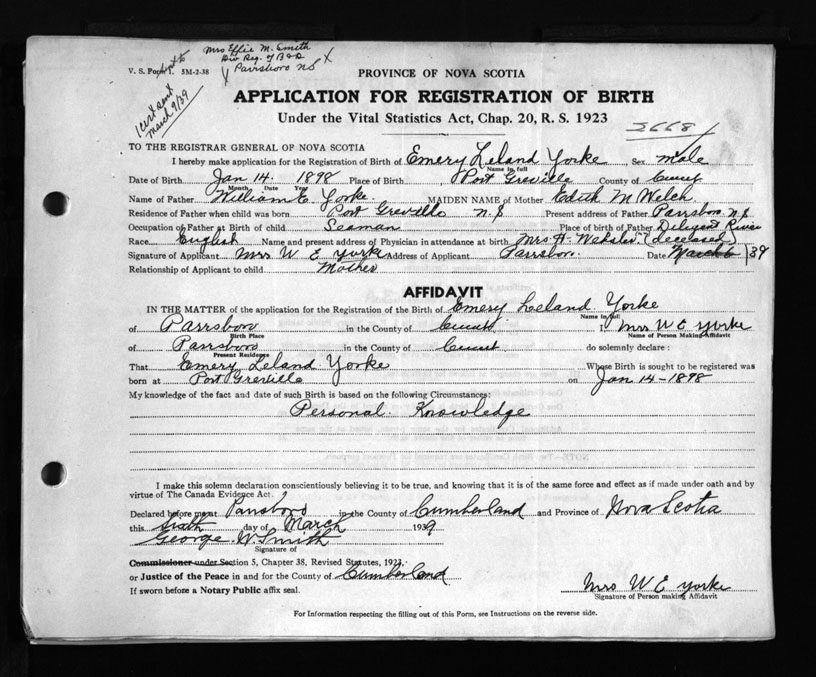 Mrs Effie M. Smith
Div Reg. of B & D
X Parrsboro NS X
V. S. Form 1. 5M-2-38
1 cert sent
March 9/39
PROVINCE OF NOVA SCOTIA
APPLICATION FOR REGISTRATION OF BIRTH
Under the Vital Statistics Act, Chap. 20, R. S. 1923
36681
TO THE REGISTRAR GENERAL OF NOVA SCOTIA
I hereby make application for the Registration of Birth of Emery Leland Yorke Sex male
Name in full
Date of Birth Jan 14. 1898 Place of Birth Port Greville County of Cumt
Month Date Year
Name of Father William E. Yorke MAIDEN NAME of Mother Edith M Welch
Residence of Father when child was born Port Greville N.S Present address of Father Parrsboro N.S.
Occupation of Father at Birth of child Seaman Place of birth of Father Diligent River
Race English Name and present address of Physician in attendance at birth Mrs. H. Webster (deceased)
Signature of Applicant Mrs W E Yorke Address of Applicant Parrsboro. Date March 6 / 39
Relationship of Applicant to child Mother
AFFIDAVIT
IN THE MATTER of the application for the Registration of Birth of Emery Leland Yorke
Name in full
of Parrsboro in the County of Cumt. I Mrs W E Yorke
Birth Place Name of Person Making Affidavit
of Parrsboro in the County of Cumt do solemnly declare:
Present Residence
That Emery Leland Yorke Whose Birth is sought to be registered was
born at Port Greville on Jan 14-1898
My knowledge of the fact and date of such Birth is based on the following Circumstances:
Personal Knowledge
I make this solemn declaration conscientiously believing it to be true, and knowing that it is of the same force and effect as if made under oath and by
virtue of The Canada Evidence Act.
Declared before me at Parrsboro in the County of Cumberland and Province of Nova Scotia
this sixth day of March 1939
George W. Smith
Signature of
Commissioner under Section 5, Chapter 38, Revised Statutes, 1923.
or Justice of the Peace in and for the County of Cumberland
If sworn before a Notary Public affix seal.
Mrs W E Yorke
Signature of Person making Affidavit
For Information respecting the filling out of this Form, see Instructions on the reverse side.